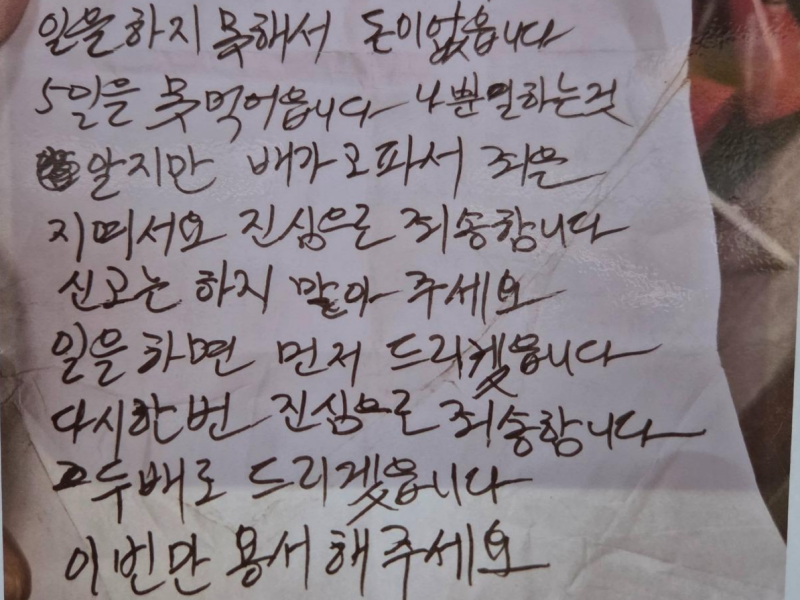 일을하지 못해서 돈이없읍니다
5일을 못먹어읍니다 나뿐일하는것
알지만 배가고파서 죄은
지떠서요 진심으로 죄송합니다
신고는 하지 말아 주세요
일을하면 먼저 드리겠읍니다
다시한번 진심으로 죄송합니다
두배로 드리겠읍니다
이번만 용서해주세요